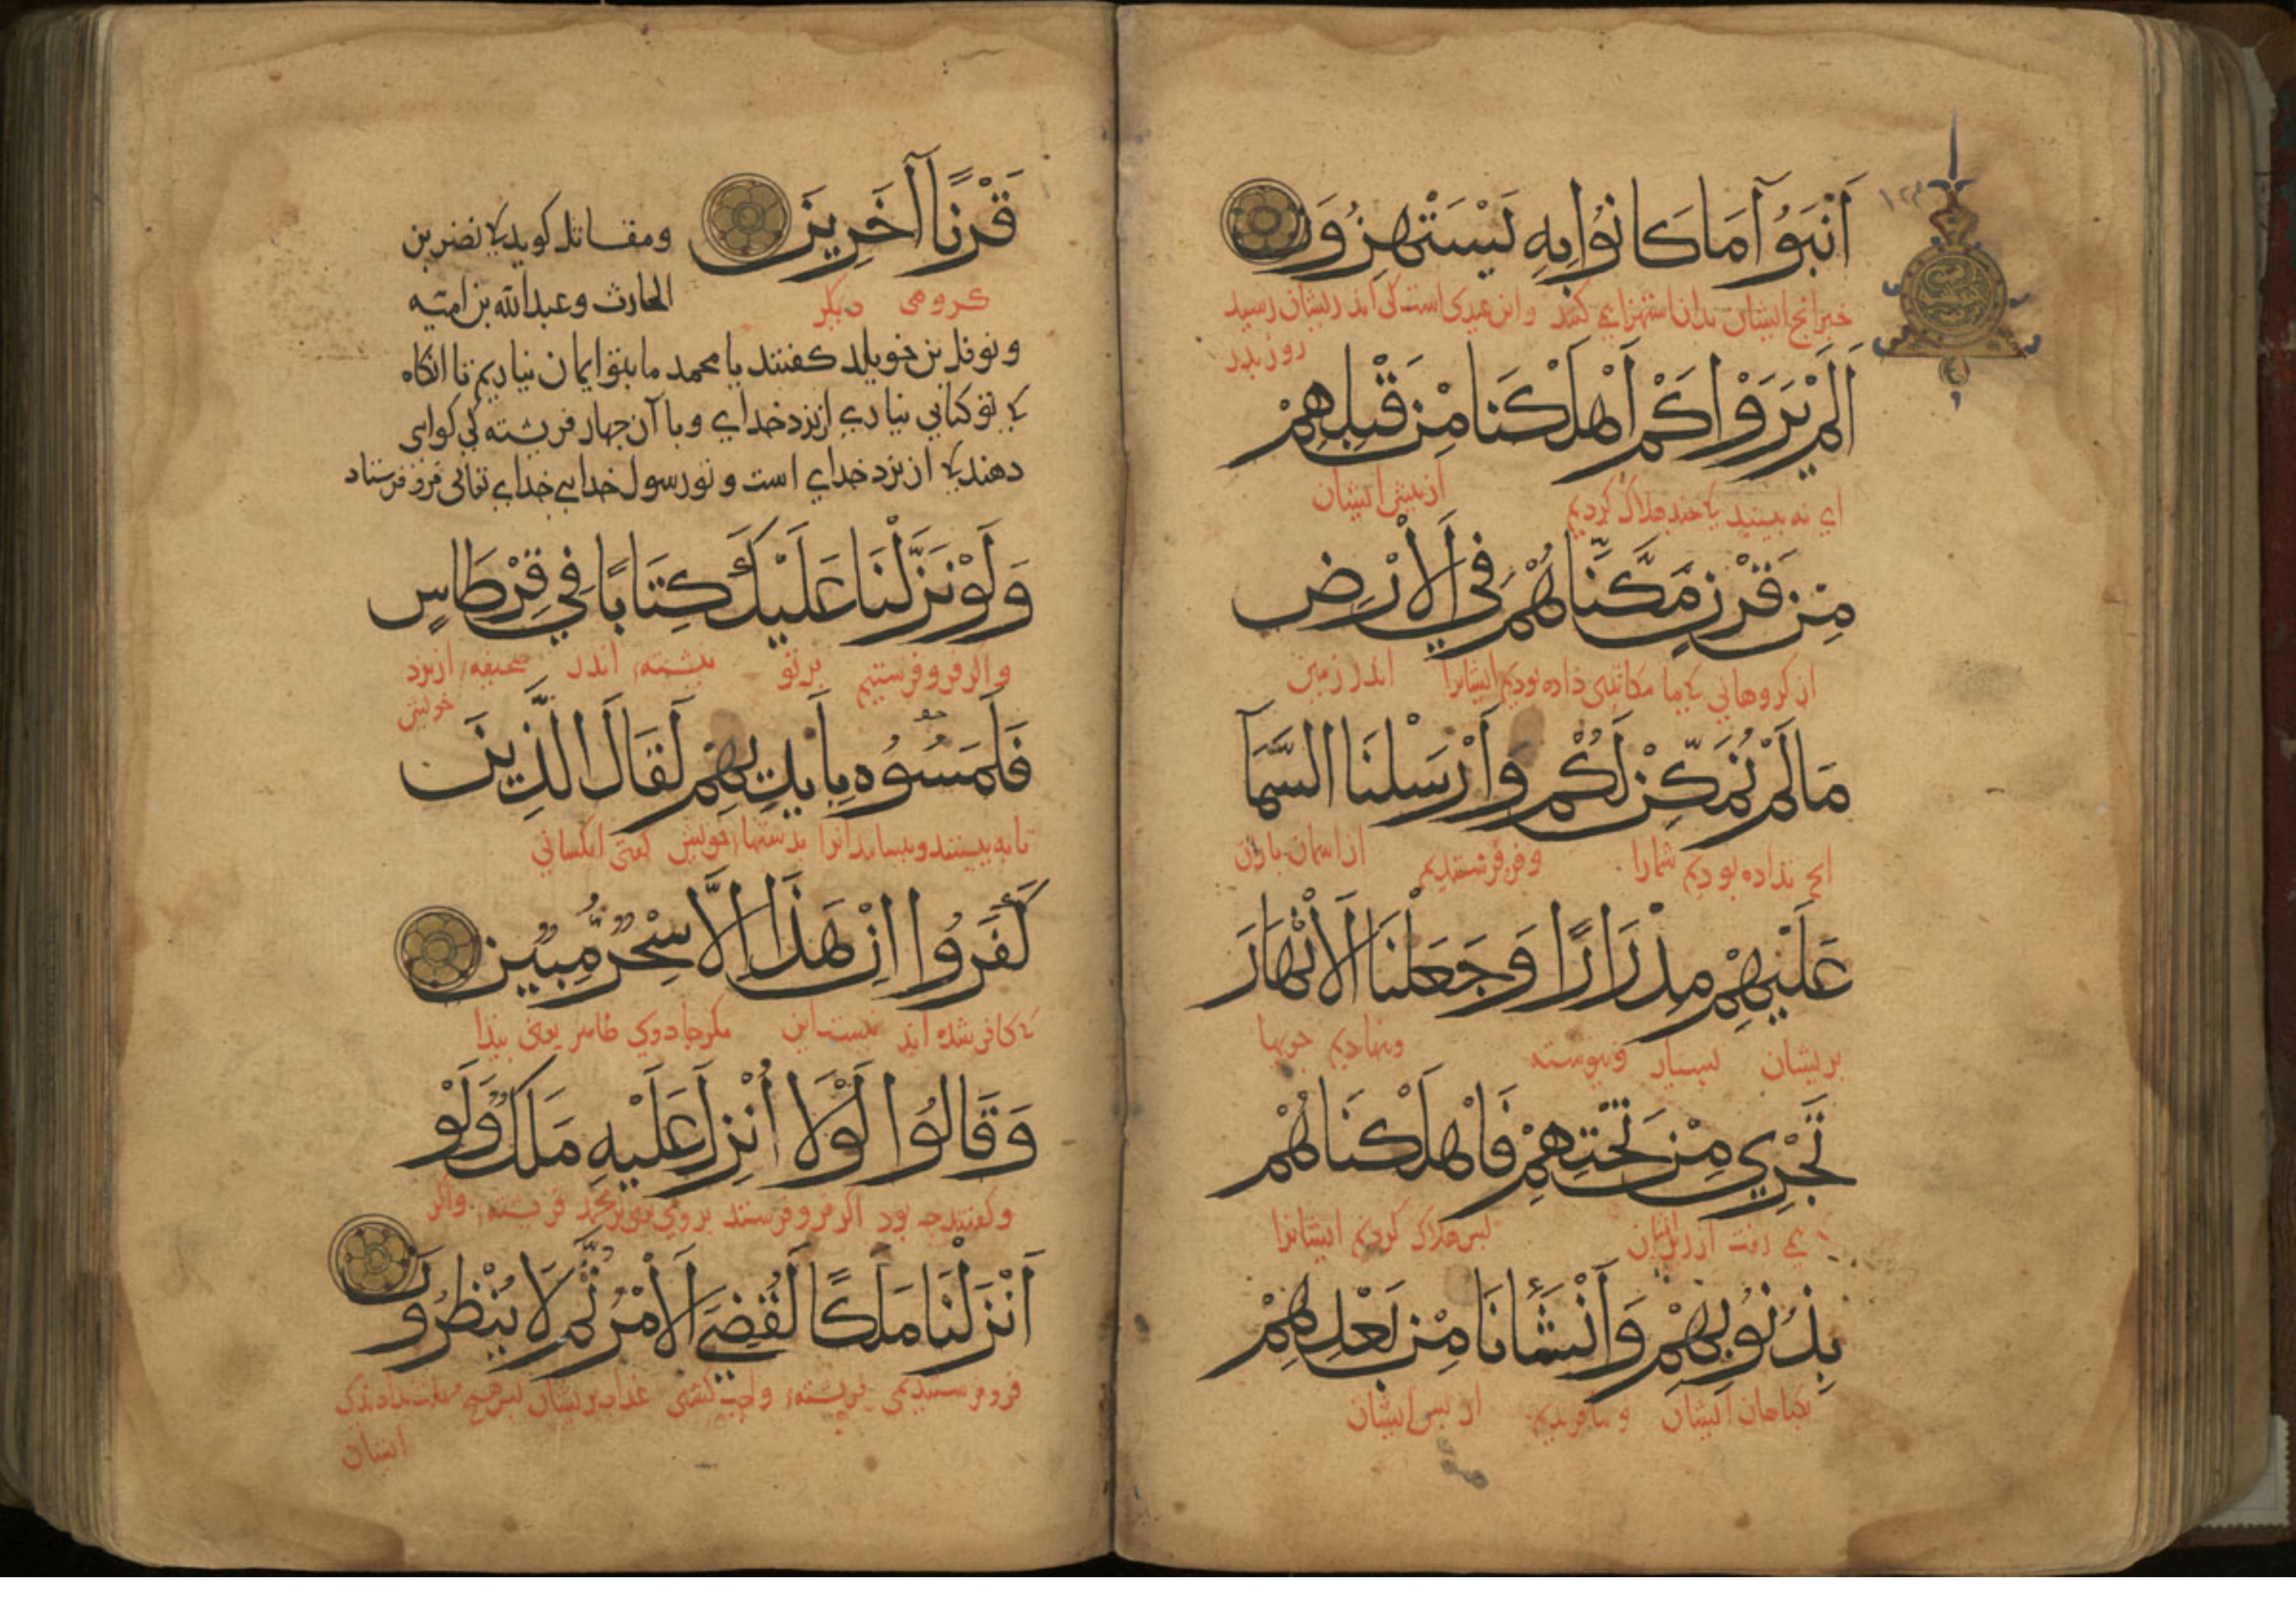 أَنْبَؤُا مَا كَانُوا بِهِ يَسْتَهْزِؤُنَ
خبر انچ ایشان بدان استهزا می کنند و این عیدی است کی اندر ایشان رسید
روز بدر
أَلَمْ يَرَوْا كَمْ أَهْلَكْنَا مِنْ قَبْلِهِمْ
ای نه بینید کا چند هلاک کردیم از پیش ایشان
مِنْ قَرْنٍ مَكَّنَّاهُمْ فِي الْأَرْضِ
از کروهانی کا ما مکانی داده بودیم ایشانرا اندر زمین
مَا لَمْ نُمَكِّنْ لَكُمْ وَأَرْسَلْنَا السَّمَآ
انچ نداده بودیم شمارا و فرو فرستدیم از اسمان باران
عَلَيْهِمْ مِدْرَارًا وَجَعَلْنَا الْأَنْهَارَ
بریشان بسیار و پیوسته و نهادیم جویها
تَجْرِي مِنْ تَحْتِهِمْ فَأَهْلَكْنَاهُمْ
می رفت از زیرشان پس هلاک کردیم ایشانرا
بِذُنُوبِهِمْ وَأَنْشَأْنَا مِنْ بَعْدِهِمْ
بکناهان ایشان و بیافریدیم از پس ایشان
قَرْنًا آخَرِينَ
کروهی دیکر
ومقاتل کوید کا نضر بن
الحارث وعبدالله بن امیه
و نوفل بن خویلد کفتند یا محمد ما بتو ایمان نیاریم تا انکاه
کا تو کتابی بیاری از نزد خدای و با آن چهار فریشته کی کواهی
دهند کا از نزد خدای است و تو رسول خدایی خدای تعالی فرو فرستاد
وَلَوْ نَزَّلْنَا عَلَيْكَ كِتَابًا فِي قِرْطَاسٍ
و اکر فرو فرستیم بر تو نبشته اندر صحیفه از نزد
خویش
فَلَمَسُوهُ بِأَيْدِيهِمْ لَقَالَ الَّذِينَ
تا به بینند و بساید انرا بدستهاء خویش کفتی انکسانی
كَفَرُوا إِنْ هَذَا إِلَّا سِحْرٌ مُبِينٌ
کا کافر شده اند نیست این مکر جادوی ظاهر یعنی پیدا
وَقَالُوا لَوْلَا أُنْزِلَ عَلَيْهِ مَلَكٌ وَلَوْ
و کفتند چه بود اکر فرو فرستند بر وی یعنی بر محمد فریشته، واکر
أَنْزَلْنَا مَلَكًا لَقُضِيَ الْأَمْرُ ثُمَّ لَا يُنْظَرُونَ
فرو فرستیدیمی فریشته، واجب کشتی عذاب بریشان پس هیچ مهلت ندادندی
ایشان